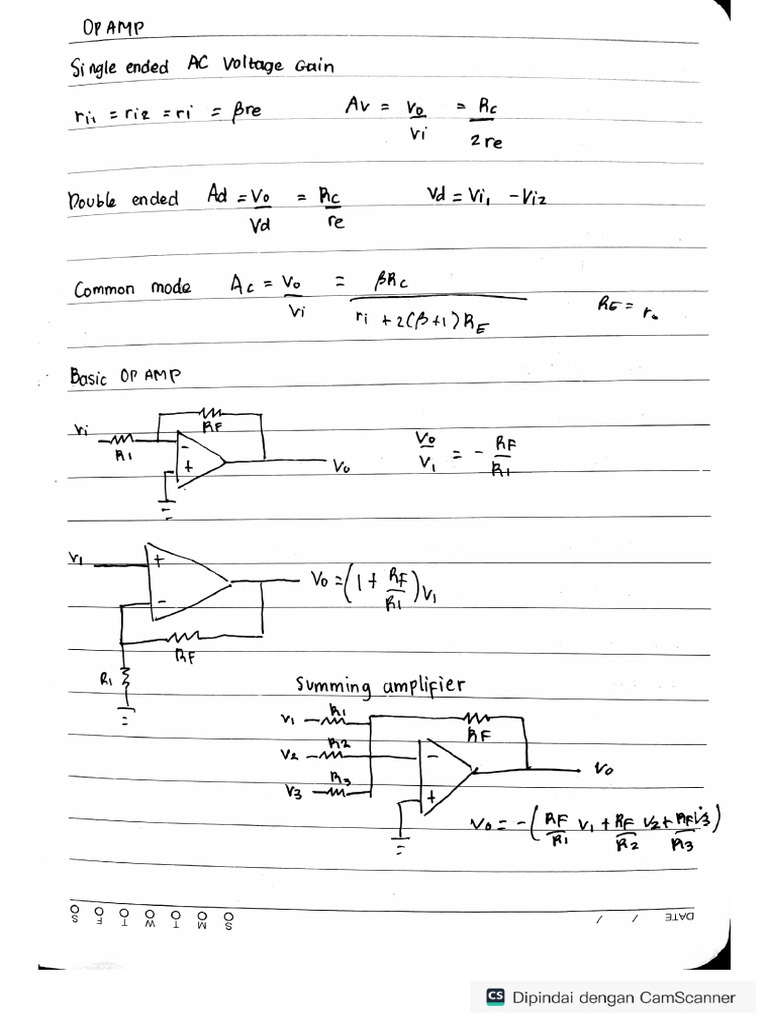 OP AMP
Single ended AC Voltage Gain
ri1 = ri2 = ri = βre Av = Vo/Vi = Rc/2re
Double ended Ad = Vo/Vd = Rc/re Vd = Vi1 - Vi2
Common mode Ac = Vo/Vi = βRc/(ri + 2(β+1)RE) RE = ro
Basic OP AMP
Vi R1 RF - + Vo Vo/V1 = - RF/R1
V1 + - RF R1 Vo = (1 + RF/R1) V1
Summing amplifier
V1 R1 RF
V2 R2 - Vo
V3 R3 +
Vo = - (RF/R1 V1 + RF/R2 V2 + RF/R3 V3)
S F T W T M S
DATE / /
CS Dipindai dengan CamScanner